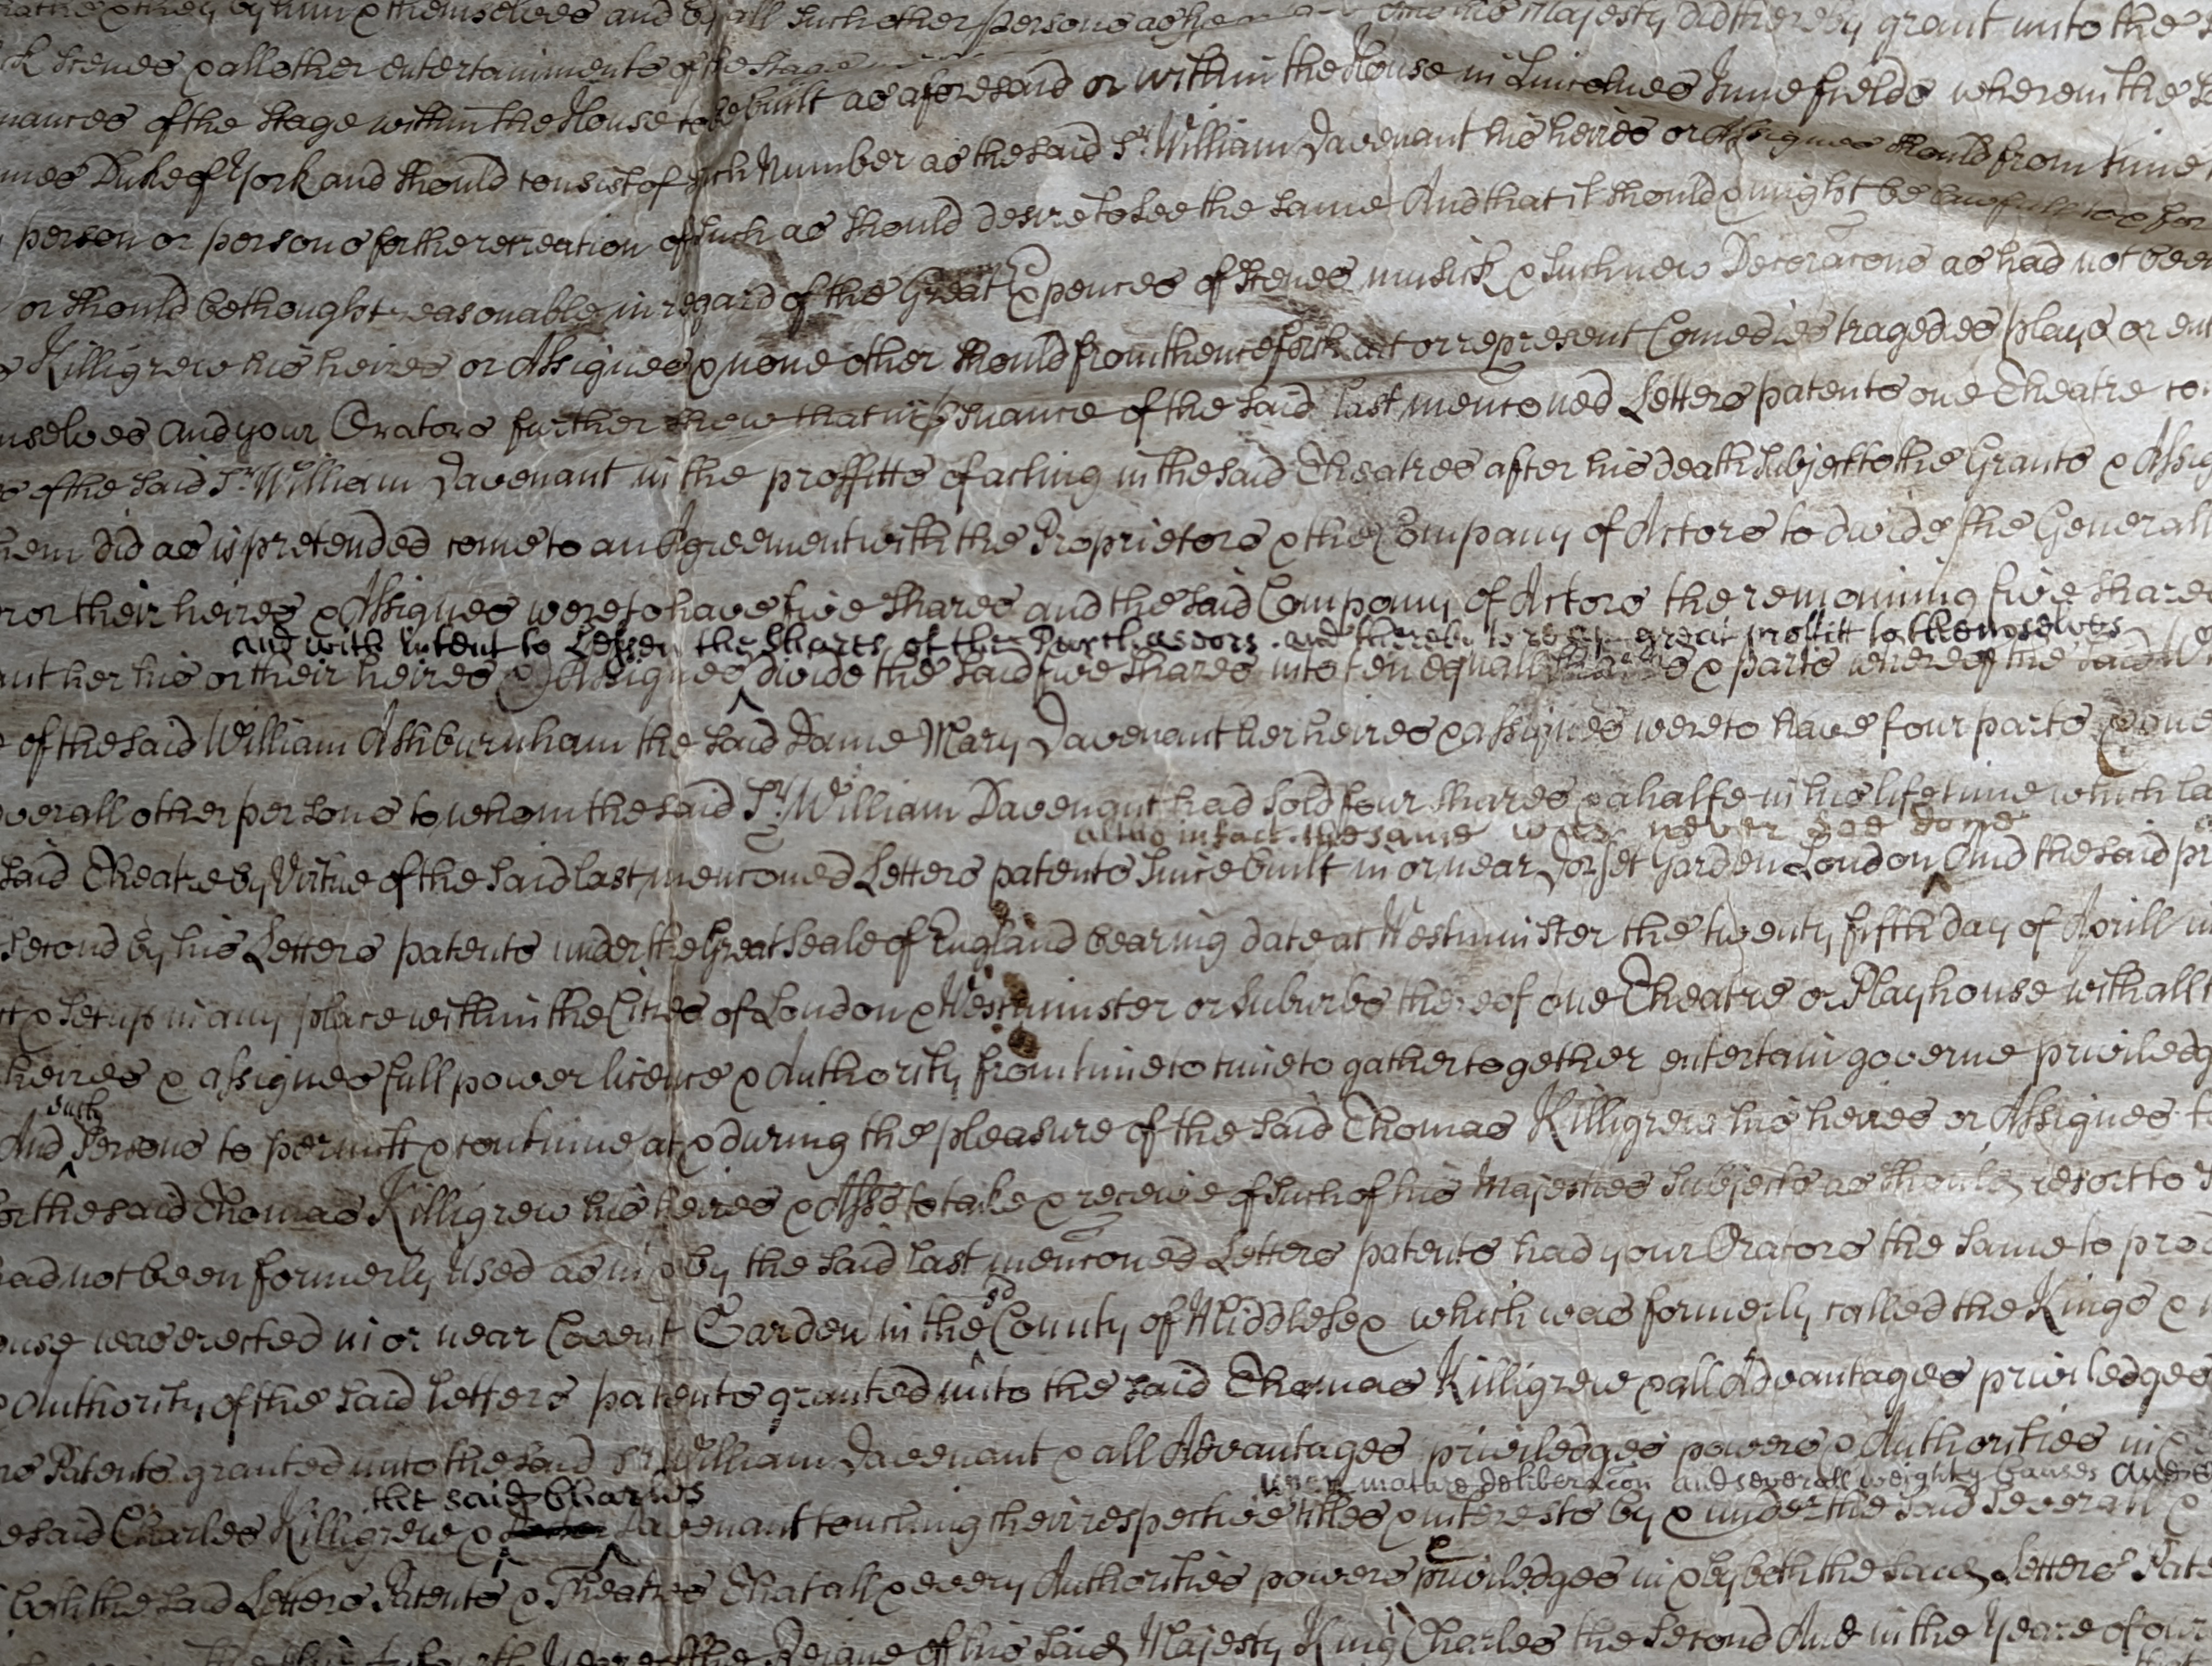 by him & themselves and by all such other persons as he Majesty did thereby grant unto the
Scenes & all other entertainments of the stage
of the Stage within the House to be built as aforesaid or within the House in Lincolnes Inne fields wherein the
Duke of York and should consist of such Number as the said Sr. William Davenant his heires or Assignes should from time
person or persons for the recreation of such as should desire to see the same And that it should & might be lawfull to & for
or should be thought reasonable in regard of the Great Expences of Scenes musick & such new Decoracons as had not been
Killigrew his heires or Assignes & none other should from thenceforth act or represent Comedies tragedies plays or
and your Orators further shew that in psuance of the said last menconed Letters patents one Theatre
of the said Sr. William Davenant in the proffitts of acting in the said Theatres after his death Subject to the Grants &
did as is pretended come to an Agreement with the Proprietors & the Company of Actors to divide the Generall
or their heires & Assignes were to have five Shares and the said Company of Actors the remaining five Shares
and with intent to Lessen the Shares of the Purchasors and thereby to great proffitt to themselves
her his or their heires & Assignes divide the said five Shares into ten equall & parts whereof the said
of the said William Ashburnham the said Dame Mary Davenant her heires & assignes were to have four parts &
over all other persons to whom the said Sr. William Davenant had sold four Shares & a halfe in his life time which
in fact the same was never soe done
said Theatre by Virtue of the said last menconed Letters patents Since built in or near Dorset Garden London And the said
Second by his Letters patents under the Great Seale of England bearing date at Westminster the twenty fifth day of Aprill
& Set up in any place within the Cities of London & Westminster or Suburbs thereof one Theatre or Playhouse with all
heires & assignes full power licence & Authority from time to time to gather together entertain governe
such
And Persons to permitt & continue at & during the pleasure of the said Thomas Killigrew his heires or Assignes
the said Thomas Killigrew his heires & Asss to take & receive of such of his Majesties Subjects as should resort to
had not been formerly Used as in & by the said last menconed Letters patents had your Orators the same to
was erected in or near Covent Garden in the sd County of Middlesex which was formerly called the Kings &
& Authority of the said Letters patents granted unto the said Thomas Killigrew & all Advantages priviledges
Patents granted unto the said Sr. William Davenant & all Advantages priviledges powers & Authorities in
upon mature deliberacon and severall weighty Causes and
the said Charles
said Charles Killigrew & Davenant touching their respective titles & interests by & under the said severall
both the said Letters Patents & Theatres That all & every Authorities powers priviledges in & by both the said Letters
Yeare of the Reigne of his said Majesty King Charles the Second And in the Yeare of our